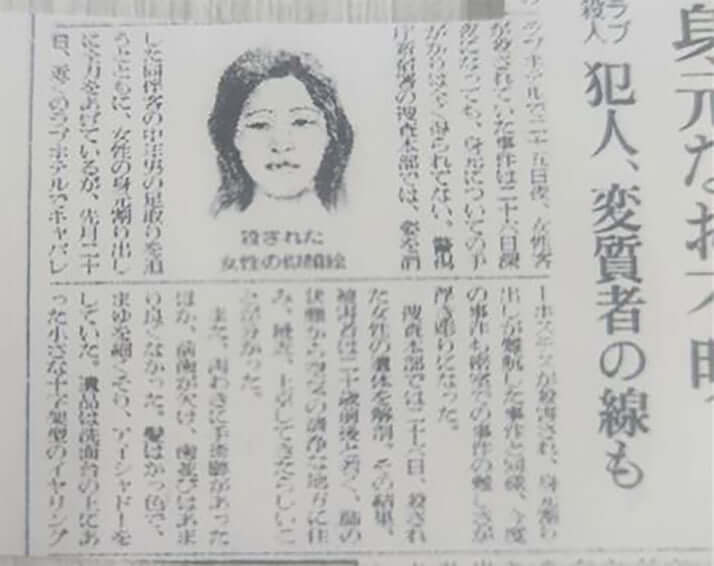 身元なお不明
ラブ
殺人
犯人、変質者の線も
ラブホテルで二十五日夜、女性客
が殺されていた事件は二十六日深
夜になっても、身元についての手
がかりは全く得られてない。警視
庁新宿署の捜査本部では、姿を消
殺された
女性の似顔絵
した同伴客の中年男の足取りを追
うとともに、女性の身元割り出し
に全力をあげているが、先月二十
日、近くのラブホテルでキャバレ
ーホステスが殺害され、身元割り
出しが難航した事件と同様、今度
の事件も密室での事件の難しさが
浮き彫りになった。
捜査本部では二十六日、殺され
た女性の遺体を解剖。その結果、
被害者は二十歳前後と若く、肺の
状態から空気の清浄な地方に住
み、最近、上京してきたらしいこ
とが分かった。
また、両わきに手術跡があった
ほか、前歯が欠け、歯並びはあま
り良くなかった。髪はかっ色で、
まゆを細くそり、アイシャドーを
していた。遺品は洗面台の上にあ
った小さな十字架型のイヤリング